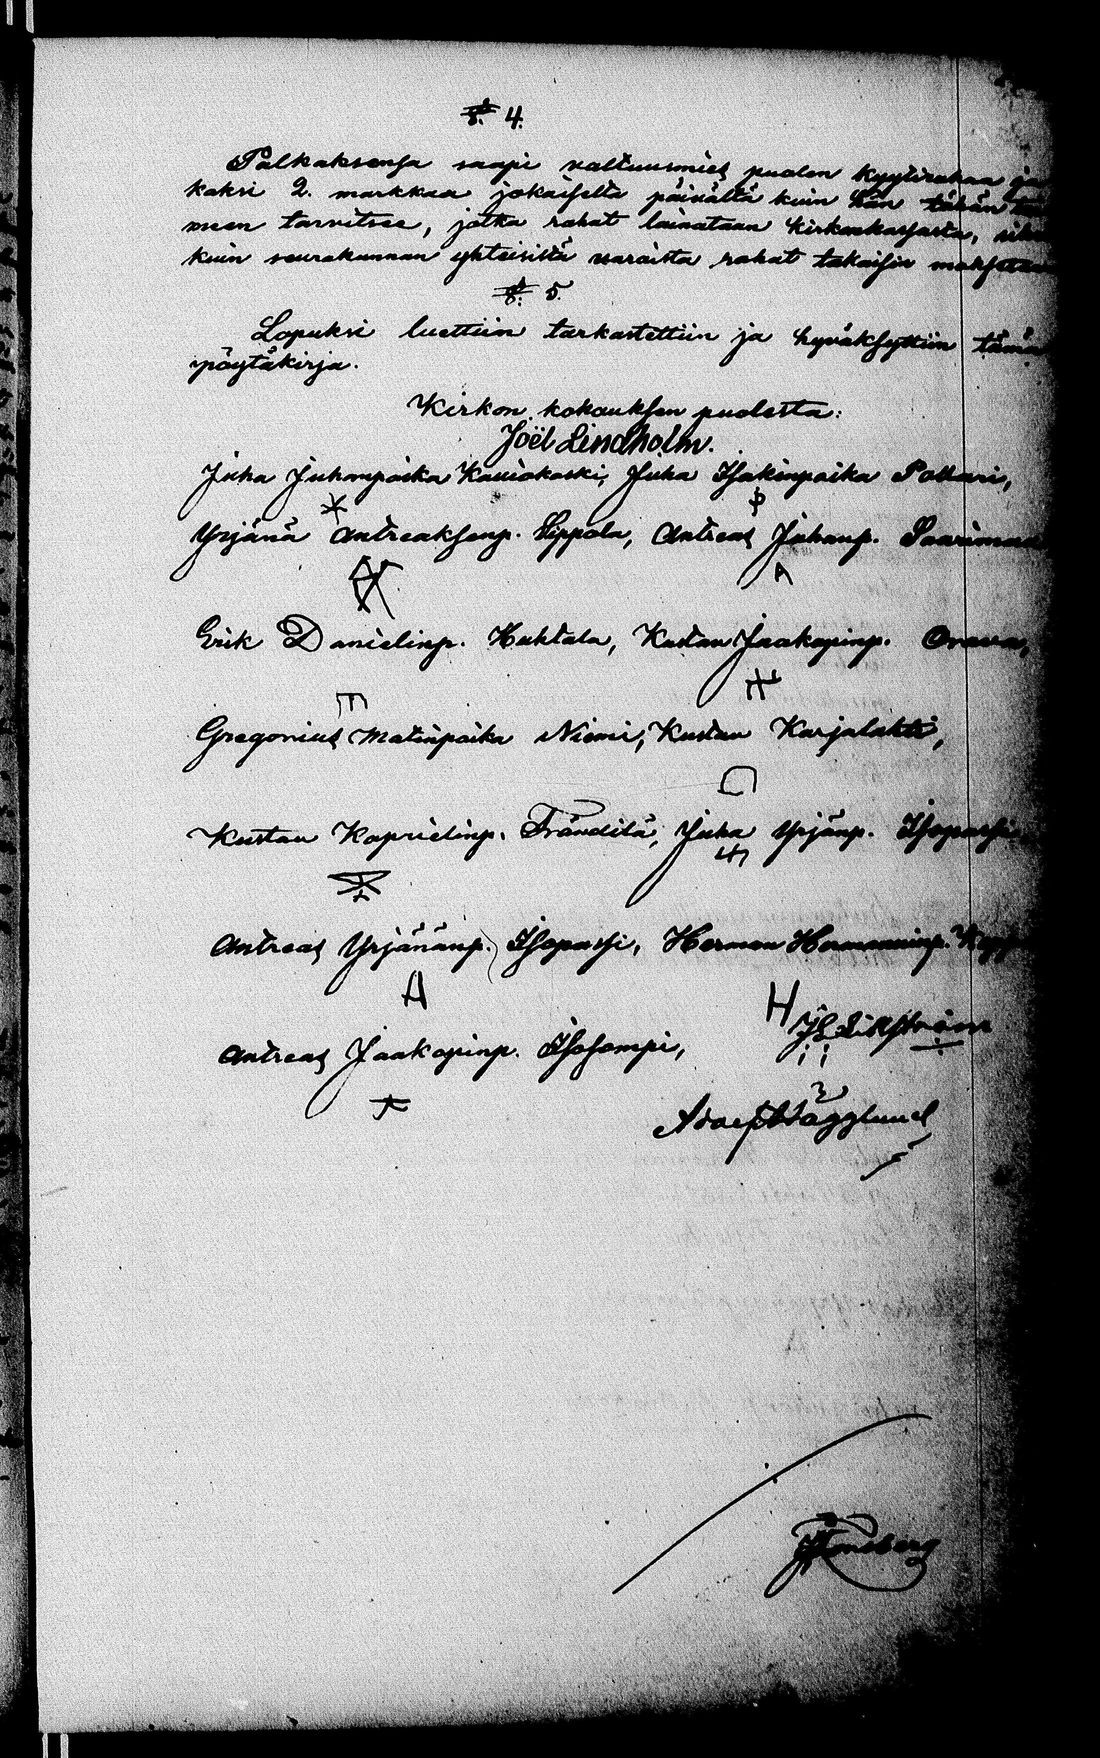 §. 4.
Palkaksensa saapi valtuusmies puolen kyytirahaa ja
kaksi 2. markkaa jokaiselta päivältä kuin hän tähän
meen tarvitsee, jotka rahat lainataan kirkonkassasta,
kuin seurakunnan yhteisistä varoista rahat takaisin maksetaan
§. 5.
Lopuksi luettiin tarkastettiin ja hyväksyttiin tämä
pöytäkirja.
Kirkon kokouksen puolesta:
Joël Lindholm.
Juha Juhanpoika Kauiokoski, Juha Isakinpoika Pollari,
Yrjänä Antreaksenp. Sippola, Antreas Juhanp. Saarimaa
Erik Danielinp. Huhtala, Kustau Jaakopinp. Orava,
Gregorius Matinpoika Niemi, Kustau Karjalahti,
Kustau Kaprielinp. Frändilä, Juha Yrjänp. Isopassi
Antreas Yrjänänp. Isopassi, Herman Hermanninp.
H
Antreas Jaakopinp. Isosompi,
Adolf Hägglund